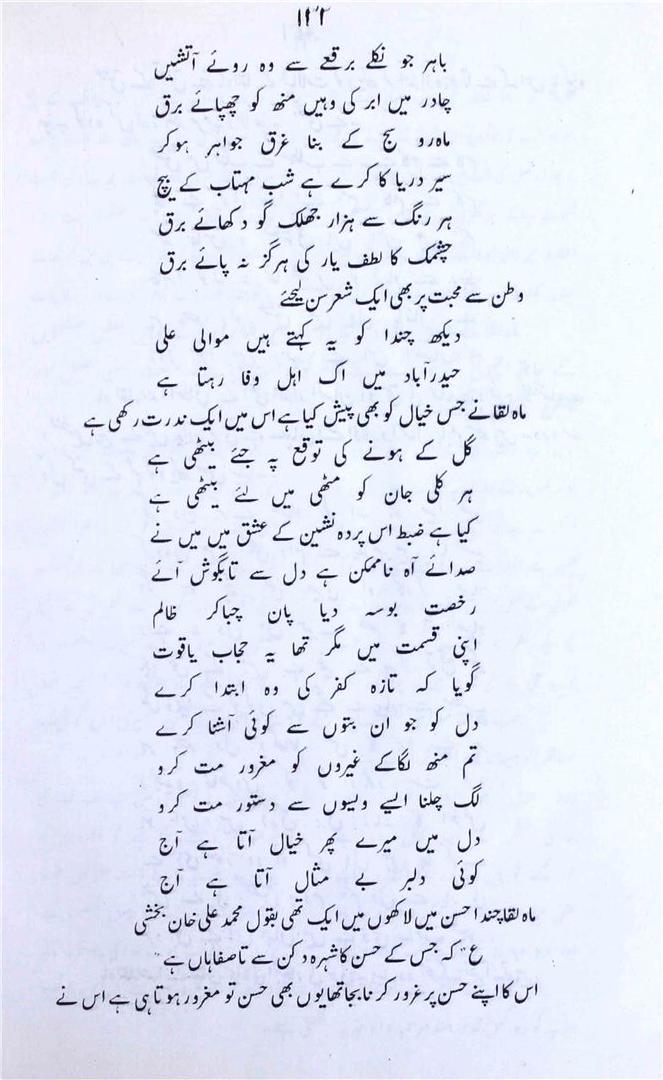 ۱۴۲
باہر جو نکلے برقعے سے وہ روئے آتشیں
چادر میں ابر کی وہیں منھ کو چھپائے برق
ماہ رو سج کے بنا غرق جواہر ہوکر
سیر دریا کا کرے ہے شب مہتاب کے بیچ
ہر رنگ سے ہزار جھلک گو دکھائے برق
چشمک کا لطف یار کی ہرگز نہ پائے برق
وطن سے محبت پر بھی ایک شعر سن لیجئے
دیکھ چندا کو یہ کہتے ہیں موالی علی
حیدرآباد میں اک اہل وفا رہتا ہے
ماہ لقا نے جس خیال کو بھی پیش کیا ہے اس میں ایک ندرت رکھی ہے
گل کے ہونے کی توقع پہ جئے بیٹھی ہے
ہر کلی جان کو مٹھی میں لئے بیٹھی ہے
کیا ہے ضبط اس پردہ نشین کے عشق میں میں نے
صدائے آہ ناممکن ہے دل سے تابگوش آئے
رخصت بوسہ دیا پان چباکر ظالم
اپنی قسمت میں مگر تھا یہ حجاب یاقوت
گویا کہ تازہ کفر کی وہ ابتدا کرے
دل کو جو ان بتوں سے کوئی آشنا کرے
تم منھ لگاکے غیروں کو مغرور مت کرو
لگ چلنا ایسے ویسوں سے دستور مت کرو
دل میں میرے پھر خیال آتا ہے آج
کوئی دلبر بے مثال آتا ہے آج
ماہ لقا چندا حسن میں لاکھوں میں ایک تھی بقول محمد علی خان بخشی
ع "کہ جس کے حسن کا شہرہ دکن سے تا صفاہاں ہے"
اس کا اپنے حسن پر غرور کرنا بجا تھا یوں بھی حسن تو مغرور ہوتا ہی ہے اس نے